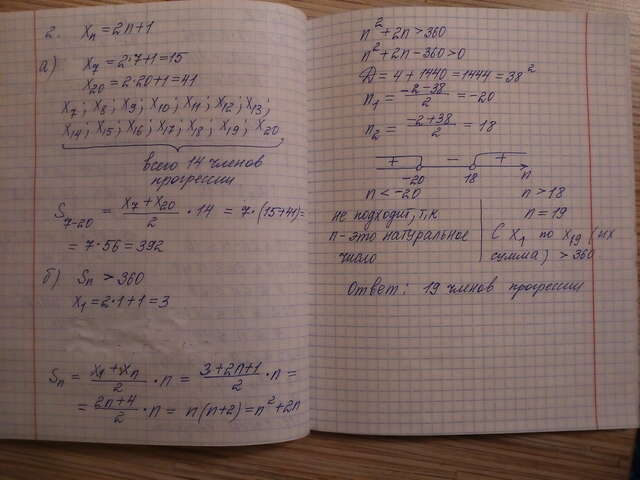 2. Xn = 2n+1
а) X7 = 2·7+1 = 15
X20 = 2·20+1 = 41
X7; X8; X9; X10; X11; X12; X13;
X14; X15; X16; X17; X18; X19; X20
всего 14 членов
прогрессии
S7-20 = (X7 + X20)/2 · 14 = 7·(15+41) =
= 7·56 = 392
б) Sn > 360
X1 = 2·1+1 = 3
Sn = (X1 + Xn)/2 · n = (3+2n+1)/2 · n =
= (2n+4)/2 · n = n(n+2) = n²+2n
n²+2n > 360
n²+2n-360 > 0
D = 4+1440 = 1444 = 38²
n1 = (-2-38)/2 = -20
n2 = (-2+38)/2 = 18
+ - +
-20 18 n
n < -20 n > 18
не подходит, т.к n = 19
n - это натуральное С X1 по X19 (их
число сумма) > 360
Ответ: 19 членов прогрессии